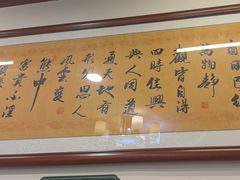 日已紅
萬物靜
觀皆自得
四時佳興
與人同道
通天地有
形外思入
風雲變
態中
富貴不淫